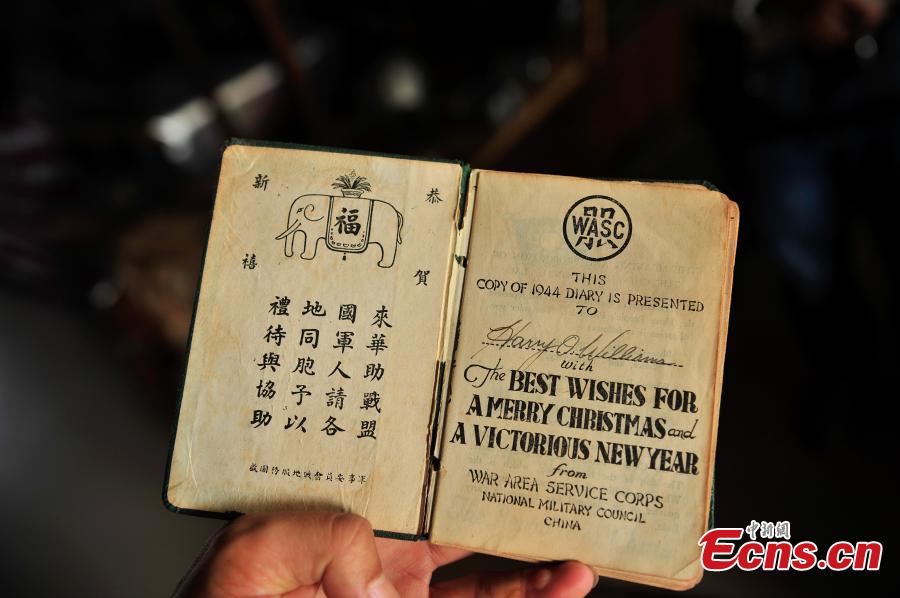 恭賀
新禧
福
來華助戰盟
國軍人請各
地同胞予以
禮待與協助
軍事委員會戰地服務團啟
WASC
THIS
COPY OF 1944 DIARY IS PRESENTED
TO
Harry O. Williams
with
The BEST WISHES FOR
A MERRY CHRISTMAS and
A VICTORIOUS NEW YEAR
from
WAR AREA SERVICE CORPS
NATIONAL MILITARY COUNCIL
CHINA
中新網
Ecns.cn